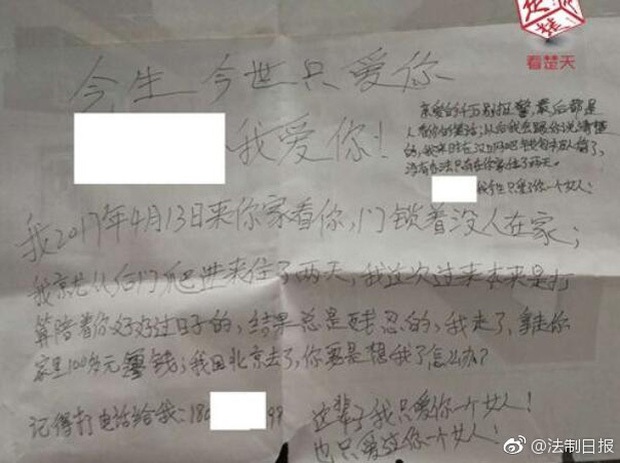 看楚天
今生今世只爱你
我爱你!
亲爱的千万别报警,最后都是
人看你的笑话;以后我会跟你说清楚
的,我来时在汉口网吧钱包被人偷了,
没有办法只有在你家住了两天。
我今生只爱了你一个女人!
我2017年4月13日来你家看你,门锁着没人在家;
我就从后门爬进来住了两天,我这次过来本来是打
算陪着你好好过日子的,结果总是残忍的,我走了,拿走你
家里100多元零钱;我回北京去了,你要是想我了怎么办?
记得打电话给我:18 99
这辈子我只爱你一个女人!
也只爱过你一个女人!
@法制日报